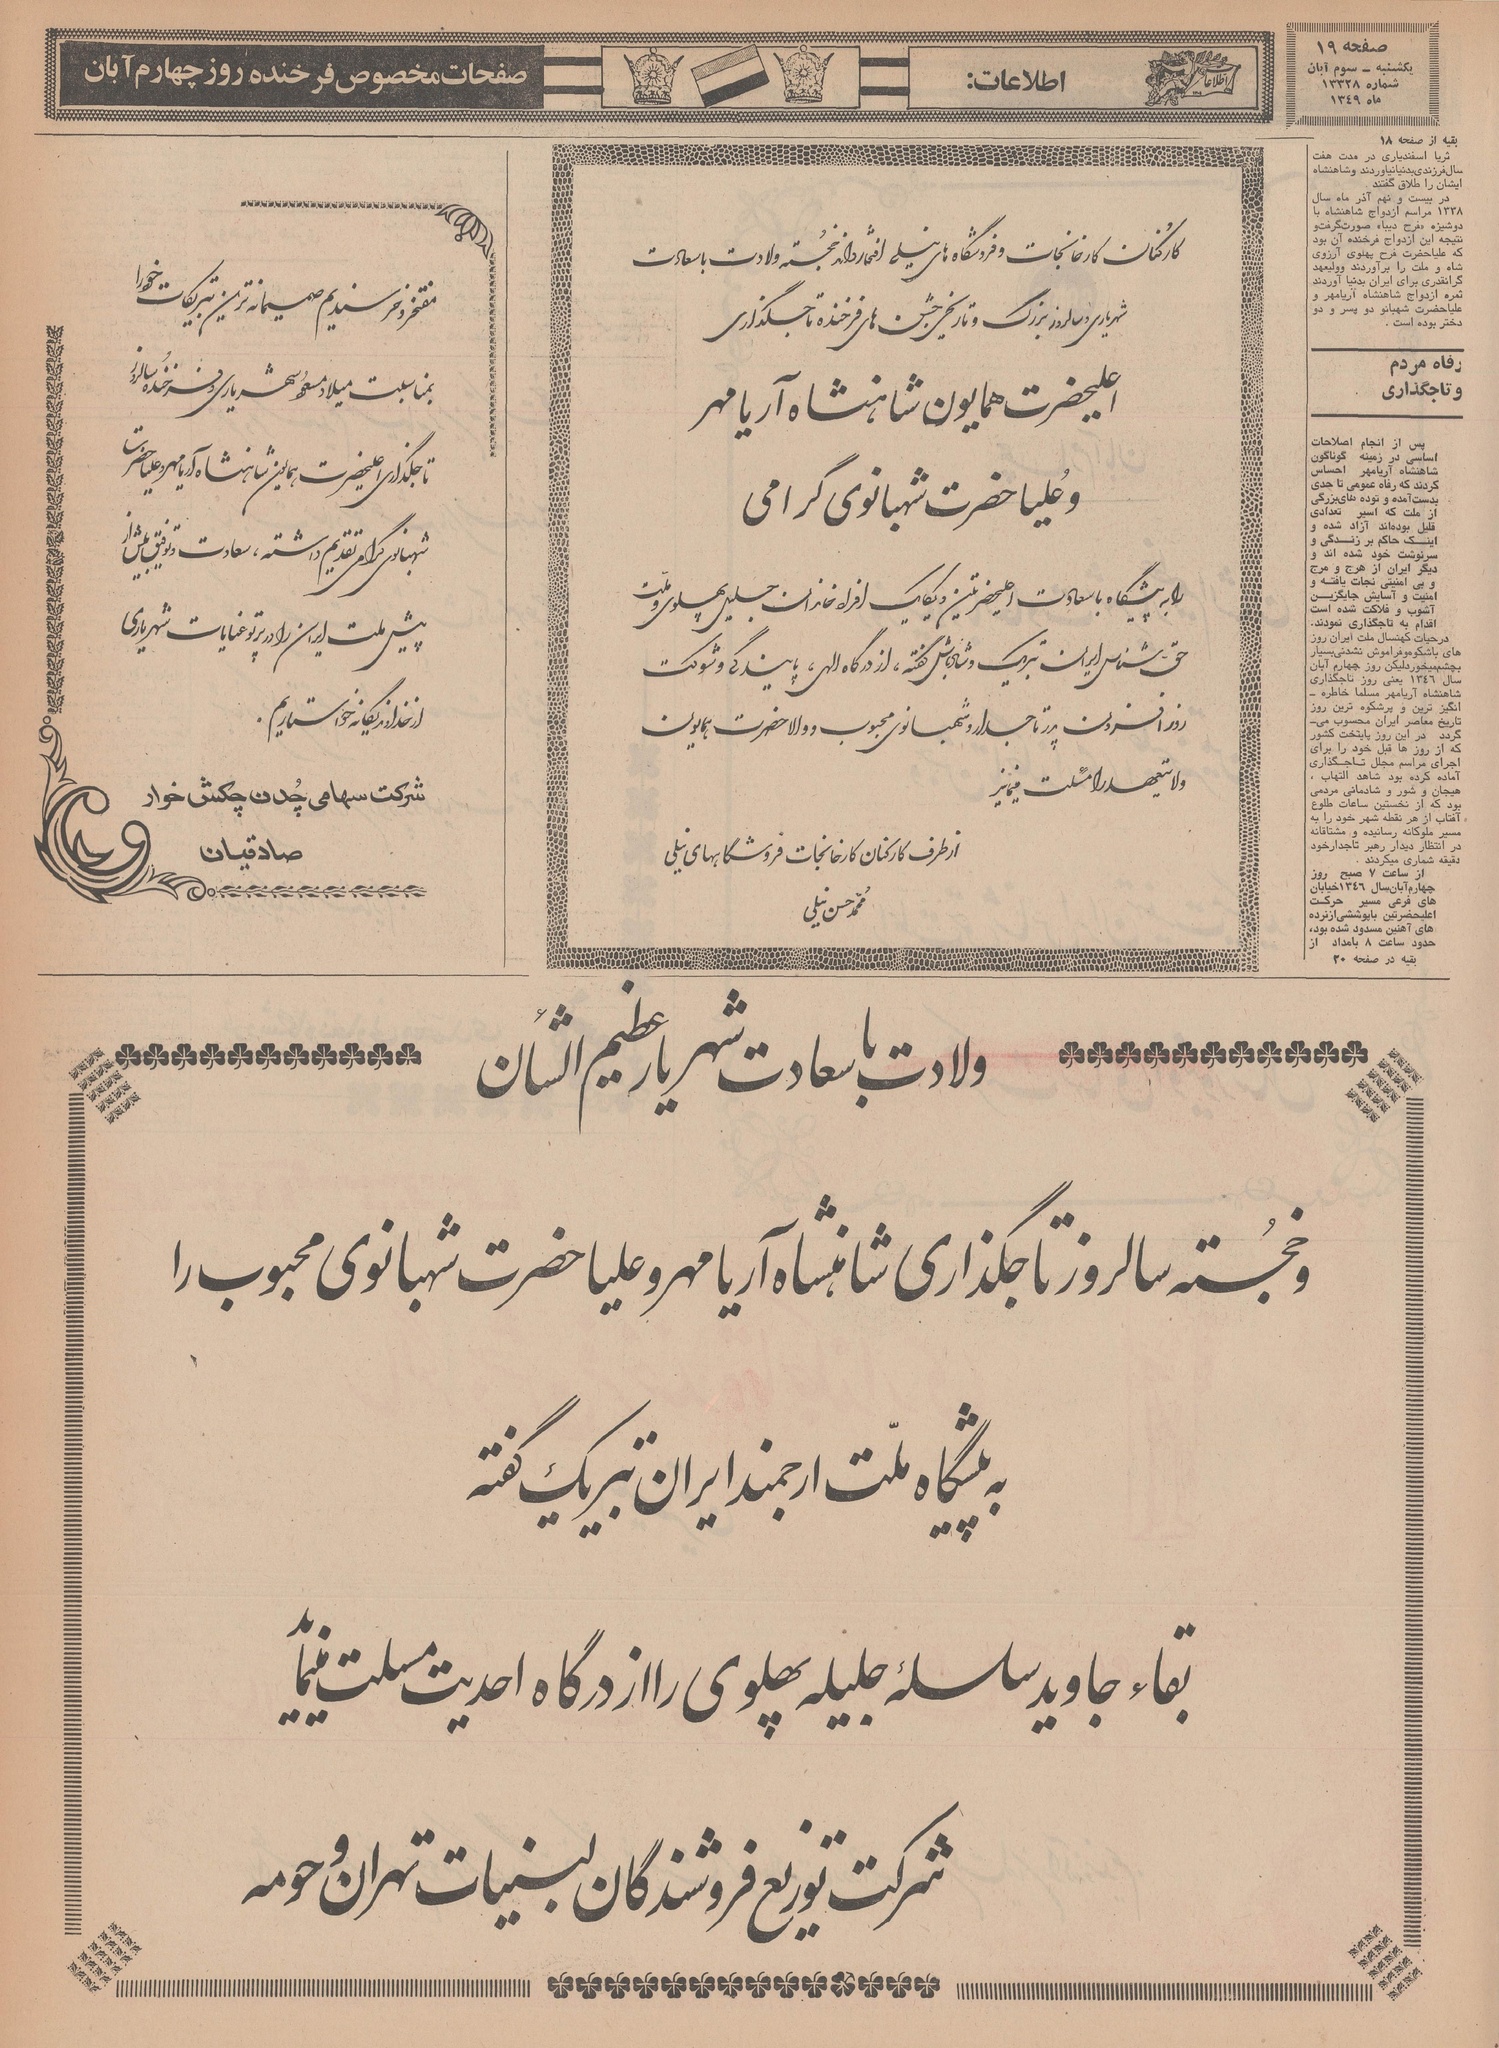 صفحه ۱۹
یکشنبه ــ سوم آبان
شماره ۱۳۳۲۸
ماه ۱۳۴۹
اطلاعات
اطلاعات:
صفحات مخصوص فرخنده روز چهارم آبان
بقیه از صفحه ۱۸
ثریا اسفندیاری در مدت هفت
سال فرزندی بدنیا نیاوردند و شاهنشاه
ایشان را طلاق گفتند
در بیست و نهم آذر ماه سال
۱۳۳۸ مراسم ازدواج شاهنشاه با
دوشیزه «فرح دیبا» صورت گرفت و
نتیجه این ازدواج فرخنده آن بود
که علیاحضرت فرح پهلوی آرزوی
شاه و ملت را برآوردند و ولیعهد
گرانقدری برای ایران بدنیا آوردند
ثمره ازدواج شاهنشاه آریامهر و
علیاحضرت شهبانو دو پسر و دو
دختر بوده است .
رفاه مردم
و تاجگذاری
پس از انجام اصلاحات
اساسی در زمینه گوناگون
شاهنشاه آریامهر احساس
کردند که رفاه عمومی تا جدی
بدست‌آمده و توده های‌بزرگی
از ملت که اسیر تعدادی
قلیل بوده‌اند آزاد شده و
اینک حاکم بر زندگی و
سرنوشت خود شده اند و
دیگر ایران از هرج و مرج
و بی امنیتی نجات یافته و
امنیت و آسایش جایگزین
آشوب و فلاکت شده است
اقدام به تاجگذاری نمودند.
درحیات کهنسال ملت ایران روز
های باشکوه و فراموش نشدنی بسیار
بچشم میخورد لیکن روز چهارم آبان
سال ۱۳۴۶ یعنی روز تاجگذاری
شاهنشاه آریامهر مسلما خاطره ــ
انگیز ترین و پرشکوه ترین روز
تاریخ معاصر ایران محسوب می‌ــ
گردد در این روز پایتخت کشور
که از روز ها قبل خود را برای
اجرای مراسم مجلل تاجگذاری
آماده کرده بود شاهد التهاب ،
هیجان و شور و شادمانی مردمی
بود که از نخستین ساعات طلوع
آفتاب از هر نقطه شهر خود را به
مسیر ملوکانه رسانیده و مشتاقانه
در انتظار دیدار رهبر تاجدار خود
دقیقه شماری میکردند .
از ساعت ۷ صبح روز
چهارم‌آبان‌سال ۱۳۴۶ خیابان
های فرعی مسیر حرکت
اعلیحضرتین باپوششی‌از‌نرده
های آهنین مسدود شده بود،
حدود ساعت ۸ بامداد از
بقیه در صفحه ۲۰
کارکنان کارخانجات و فروشگاه های نیلی افتخار دارند خجسته ولادت با سعادت
شهریاری و سالروز بزرگ و تاریخی جشن های فرخنده تاجگذاری
اعلیحضرت همایون شاهنشاه آریامهر
و علیاحضرت شهبانوی گرامی
را به پیشگاه با سعادت اعلیحضرتین و یکایک افراد خاندان جلیل پهلوی و ملت
حق شناس ایران تبریک و شادباش گفته ، از درگاه الهی ، پایندگی و شوکت
روز افزون پدر تاجدار و شهبانوی محبوب و والاحضرت همایون
ولایتعهد را مسئلت مینمایند
از طرف کارکنان کارخانجات فروشگاههای نیلی
محمد حسن نیلی
مفتخر و خرسندیم صمیمانه ترین تبریکات خود را
بمناسبت میلاد مسعود شهریاری و فرخنده سالروز
تاجگذاری اعلیحضرت همایون شاهنشاه آریامهر و علیاحضرت
شهبانوی گرامی تقدیم داشته ، سعادت و توفیق بیش از
پیش ملت ایران را در پرتو عنایات شهریاری
از خداوند یگانه خواستاریم .
شرکت سهامی چُدن چکش خوار
صادقیان
ولادت با سعادت شهریار عظیم الشأن
و خجسته سالروز تاجگذاری شاهنشاه آریامهر و علیاحضرت شهبانوی محبوب را
به پیشگاه ملّت ارجمند ایران تبریک گفته
بقاء جاوید سلسلهٔ جلیله پهلوی را از درگاه احدیت مسئلت مینماید
شرکت توزیع فروشندگان لبنیات تهران و حومه